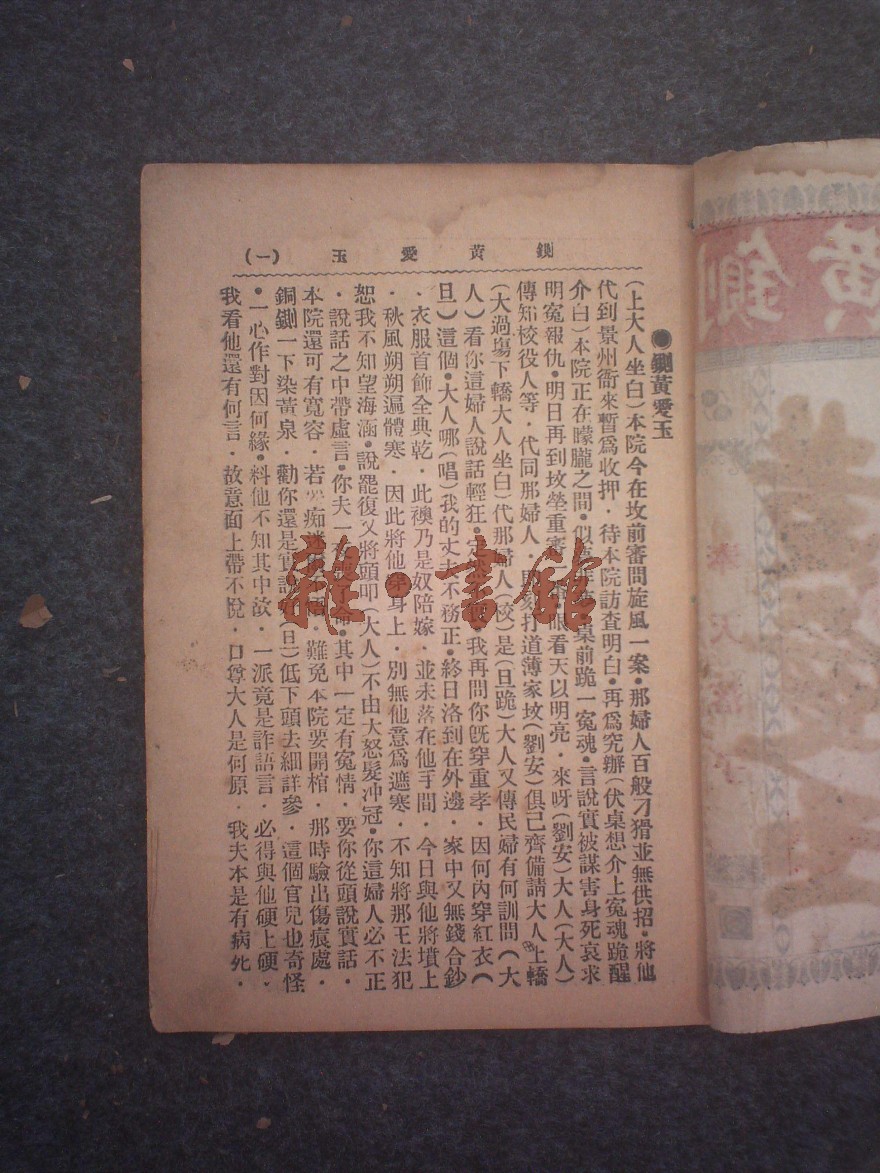 鍘黃愛玉(一)
●鍘黃愛玉
(上大人坐白)本院今在坟前審問旋風一案●那婦人百般刁猾並無供招●將他
代到景州衙來暫爲收押．待本院訪查明白●再爲究辦(伏桌想介上冤魂跪醒
介白)本院正在朦朧之間●似 桌前跪一冤魂●言說實被謀害身死哀求
明冤報仇●明日再到坟塋重審 眼看天以明亮．來呀(劉安)大人(大人)
傳知校役人等．代同那婦人． 刻打道薄家坟(劉安)俱已齊備請大人上轎
(大過塲下轎大人坐白)代那婦人(校)是(旦跪)大人又傳民婦有何訓問(大
人)看你這婦人說話輕狂●定 我再問你旣穿重孝．因何內穿紅衣(
旦)這個●大人哪(唱)我的丈夫不務正●終日洛到在外邊．家中又無錢合鈔
．衣服首飾全典乾．此襖乃是奴陪嫁．並未落在他手間．今日與他將墳上
．秋風朔朔遍體寒．因此將他 身上．別無他意爲遮寒．不知將那王法犯
恕我不知望海涵●說罷復又將頭叩(大人)不由大怒髮冲冠●你這婦人必不正
．說話之中帶虛言●你夫一 其中一定有冤情．要你從頭說實話．
本院還可有寬容．若 痴迷 難免本院要開棺．那時驗出傷痕處．
銅鍘一下染黃泉．勸你還是實說 (旦)低下頭去細詳參．這個官兒也奇怪
●一心作對因何緣●料他不知其中故．一派竟是詐語言．必得與他硬上硬．
我看他還有何言．故意面上帶不悅．口尊大人是何原．我夫本是有病死．
雜·書館